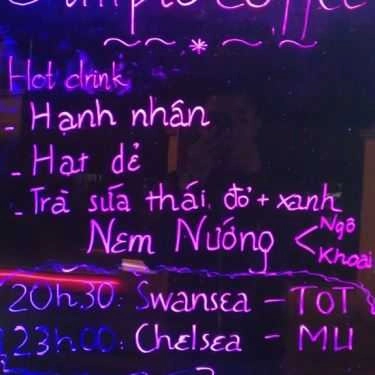 Simple Coffee
Hot drink
- Hạnh nhân
- Hạt dẻ
- Trà sữa thái đỏ + xanh
Nem Nướng < Ngô
Khoai
20h.30: Swansea - TOT
23h.00: Chelsea - MU